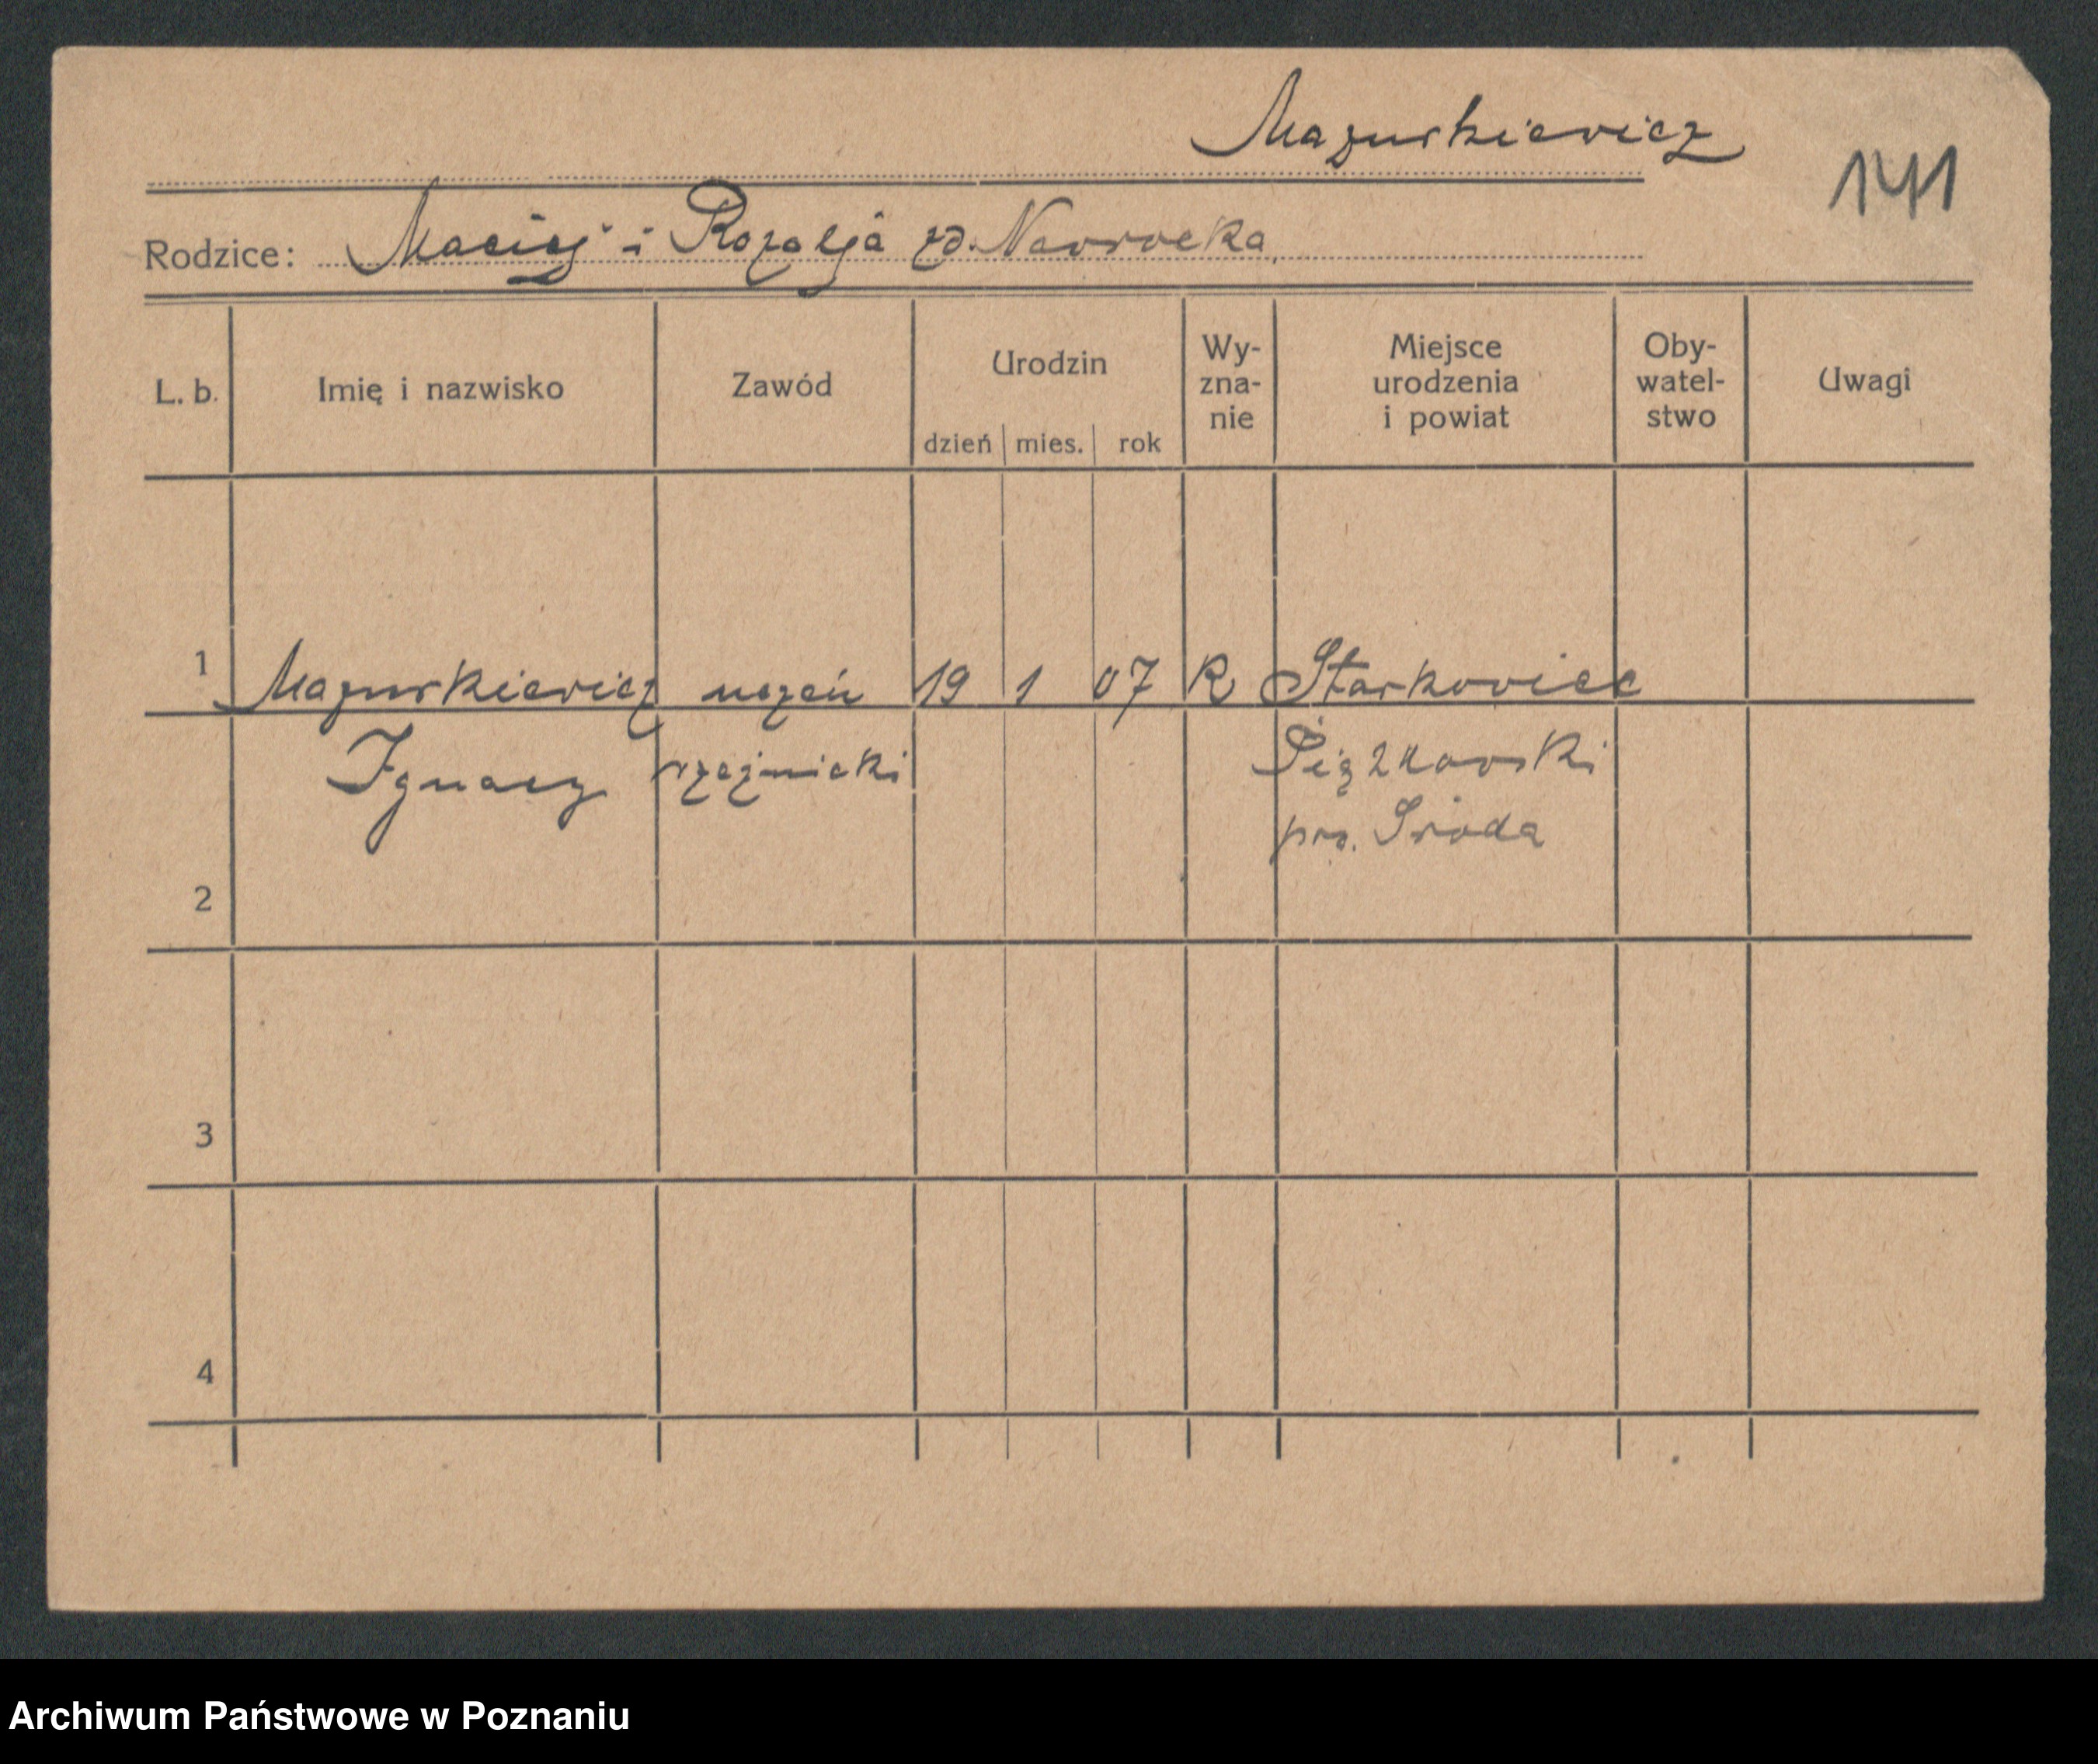 Mazurkiewicz
141
Rodzice: Maciej i Rozalja zd. Nawrocka
L. b. Imię i nazwisko Zawód Urodzin dzień mies. rok Wy-zna-nie Miejsce urodzenia i powiat Oby-watel-stwo Uwagi
1 Mazurkiewicz uczeń 19 1 07 R Starkowiec
Ignacy rzeźnicki Piątkowski
pow. Środa
2
3
4
Archiwum Państwowe w Poznaniu